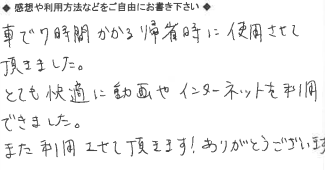 ◆ 感想や利用方法などをご自由にお書き下さい ◆
車で7時間かかる帰省時に使用させて
頂きました。
とても快適に動画やインターネットを利用
できました。
また利用させて頂きます!ありがとうございます